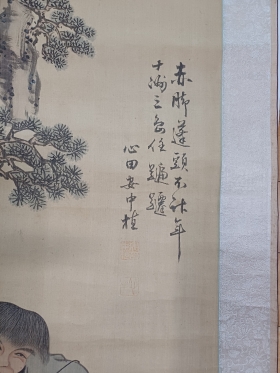 赤脚蓬頭不計年
十洲三島任蹁躚
心田安中植